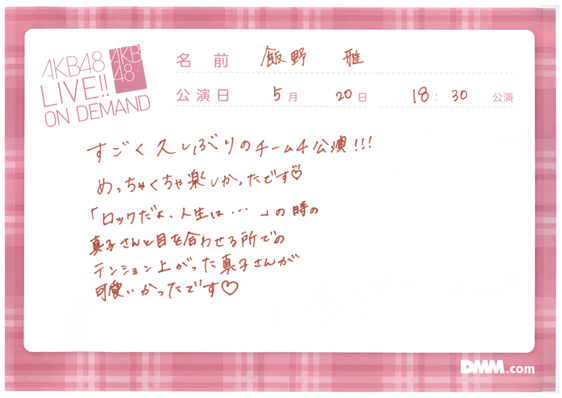 AKB48
LIVE!!
ON DEMAND
AKB
48
名前 飯野 雅
公演日 5月 20日 18:30 公演
すごく久しぶりのチーム4公演!!!
めっちゃくちゃ楽しかったです♡
「ロックだよ、人生は…」の時の
真子さんと目を合わせる所での
テンション上がった真子さんが
可愛いかったです♡
DMM.com